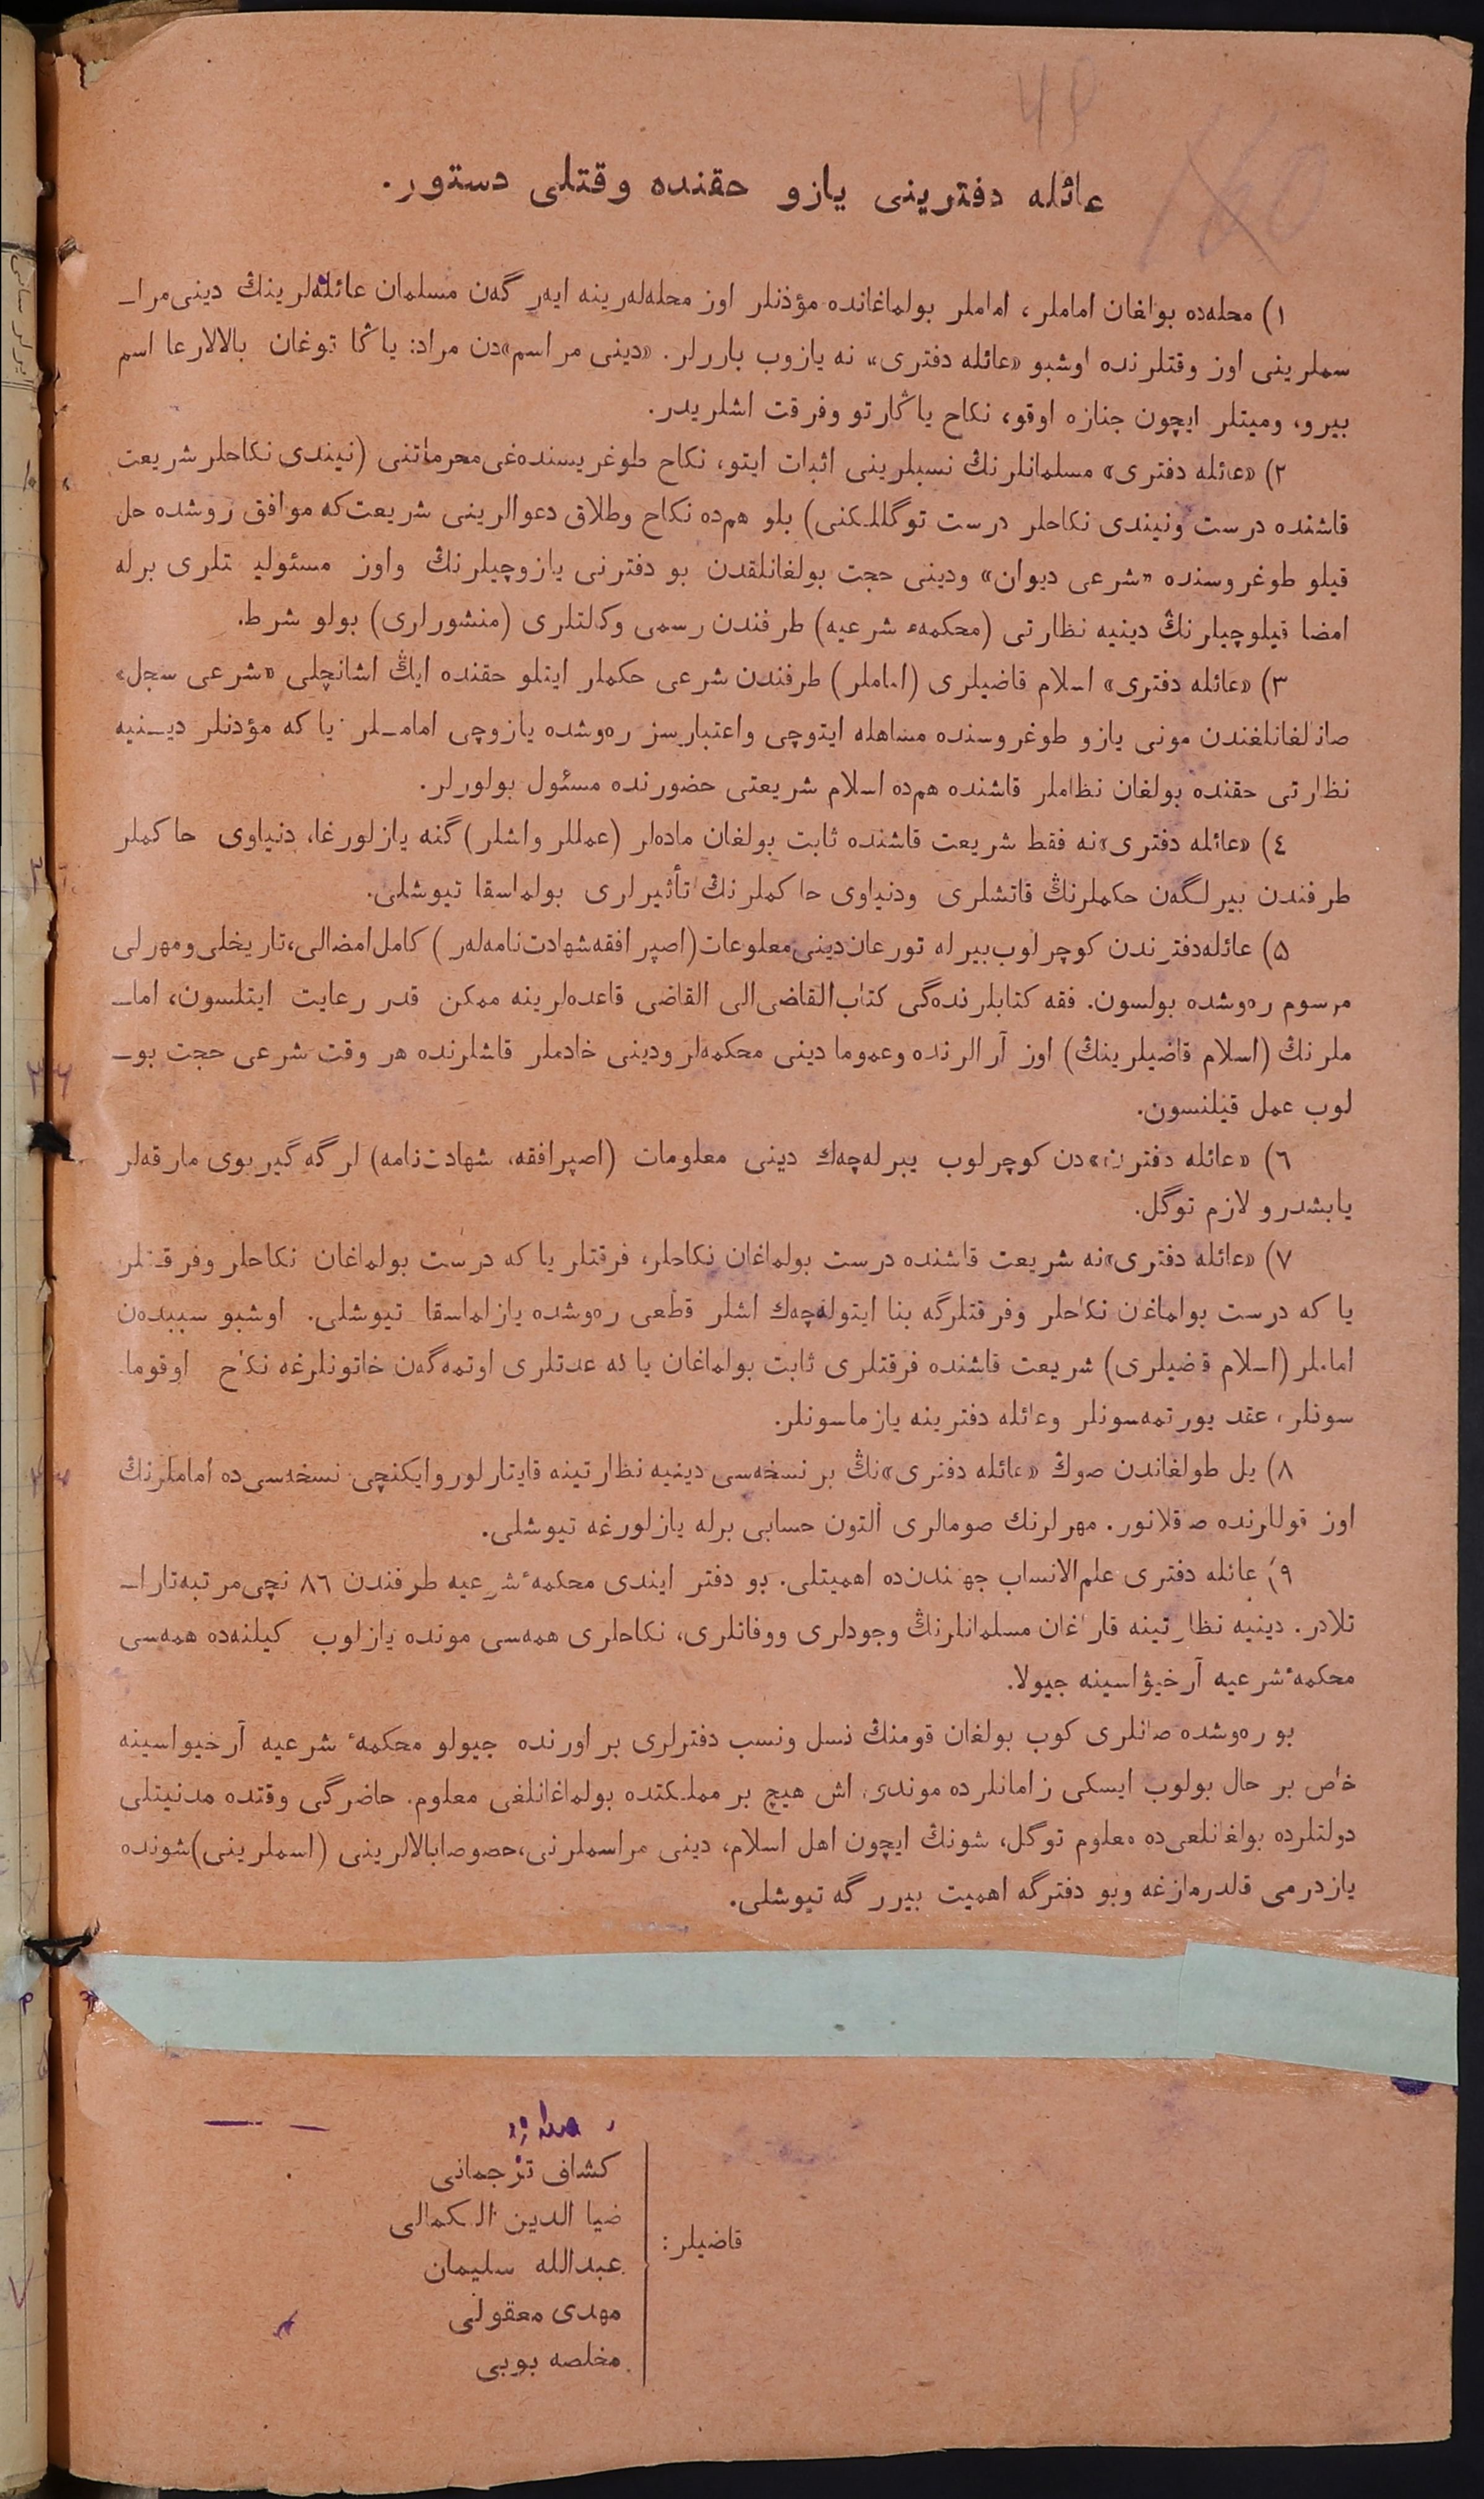 عائله دفترينی يازو حقنده وقتلی دستور.
١) محله‌ده بولغان اماملر، اماملر بولماغانده مؤذنلر اوز محله‌لەرينه ايەر گەن مسلمان عائله‌لرينڭ دينی مرا‌ـ
سملرينی اوز وقتلرنده اوشبو «عائله دفتری» نه يازوب باررلر. «دينی مراسم»دن مراد: ياڭا توغان بالالارعا اسم
بيرو، وميتلر ايچون جنازه اوقو، نكاح ياڭارتو وفرقت اشلريدر.
٢) «عائله دفتری» مسلمانلرنڭ نسبلرينی اثبات ايتو، نكاح طوغريسنده‌غی محرماتنی (نيندی نكاحلر شريعت
قاشنده درست ونيندی نكاحلر درست توگللكنی) بلو هم‌ده نكاح وطلاق دعوالرينی شريعت‌كه موافق روشده حل
قيلو طوغروسنده «شرعی ديوان» ودينی حجت بولغانلقدن بو دفترنی يازوچيلرنڭ واوز مسئوليتلری برله
امضا قيلوچيلرنڭ دينيه نظارتی (محكمهٔ شرعيه) طرفندن رسمی وكالتلری (منشورلری) بولو شرط.
٣) «عائله دفتری» اسلام قاضيلری (اماملر) طرفندن شرعی حكملر ايتلو حقنده ايڭ اشانچلی «شرعی سجل»
صانالغانلغندن مونی يازو طوغروسنده مساهله ايتوچی واعتبارسز ره‌وشده يازوچی اماملر يا كه مؤذنلر دينيه
نظارتی حقنده بولغان نظاملر قاشنده هم‌ده اسلام شريعتی حضورنده مسئول بولورلر.
٤) «عائله دفتری»نه فقط شريعت قاشنده ثابت بولغان ماده‌لر (عمللر واشلر) گنه يازلورغا، دنياوی حاكملر
طرفندن بيرلگەن حكملرنڭ قاتشلری ودنياوی حاكملرنڭ تأثيرلری بولماسقا تيوشلی.
۵) عائله‌دفترندن كوچرلوب بيرله تورعان دينی معلوعات (اصپرافقه شهادت‌نامه‌لەر) كامل امضالی، تاريخلی ومهرلی
مرسوم ره‌وشده بولسون. فقه كتابلرنده‌گی كتاب القاضی الی القاضی قاعده‌لرينه ممكن قدر رعايت ايتلسون، اما‌ـ
ملرنڭ (اسلام قاضيلرينڭ) اوز آرالرنده وعموما دينی محكمه‌لر ودينی خادملر قاشلرنده هر وقت شرعی حجت بو‌ـ
لوب عمل قيلنسون.
٦) «عائله دفترن»دن كوچرلوب يبرله‌چەك دينی معلومات (اصپرافقه، شهادت‌نامه) لرگه گيربوی مارقەلر
يابشدرو لازم توگل.
٧) «عائله دفتری»نه شريعت قاشنده درست بولماغان نكاحلر، فرقتلر يا كه درست بولماغان نكاحلر وفرقتلر
يا كه درست بولماغان نكاحلر وفرقتلرگه بنا ايتوله‌چەك اشلر قطعی ره‌وشده يازلماسقا تيوشلی. اوشبو سببدەن
اماملر (اسلام قاضيلری) شريعت قاشنده فرقتلری ثابت بولماغان يا كه عدتلری اوتمەگەن خاتونلرغه نكاح اوقوما‌
سونلر، عقد يورتمەسونلر وعائله دفترينه يازماسونلر.
٨) يل طولغاندن صوڭ «عائله دفتری»نڭ بر نسخه‌سی دينيه نظارتينه قايتارلور وايكنچی نسخه‌سی ده اماملرنڭ
اوز قوللرنده صاقلانور. مهرلرنك صومالری آلتون حسابی برله يازلورغه تيوشلی.
٩) عائله دفتری علم الانساب جهتندن‌ده اهميتلی. بو دفتر ايندی محكمهٔ شرعيه طرفندن ٨٦ نچی مرتبه تارا‌ـ
تلادر. دينيه نظارتينه قاراغان مسلمانلرنڭ وجودلری ووفاتلری، نكاحلری همه‌سی مونده يازلوب كيلنه‌ده همه‌سی
محكمهٔ شرعيه آرخيۋاسينه جيولا.
بو ره‌وشده صانلری كوب بولغان قومنڭ نسل ونسب دفترلری بر اورنده جيولو محكمهٔ شرعيه آرخيواسينه
خاص بر حال بولوب ايسكی زامانلرده موندی اش هيچ بر مملكتده بولماغانلغی معلوم. حاضرگی وقتده مدنيتلی
دولتلرده بولغانلعی‌ده معلوم توگل، شونڭ ايچون اهل اسلام، دينی مراسملرنی، حصوصا بالالرينی (اسملرينی) شونده
يازدرمی قالدرمازغه وبو دفترگه اهميت بيررگه تيوشلی.
قاضيلر:
كشاف ترجمانی
ضيا الدين الكمالی
عبدالله سليمان
مهدی معقولی
مخلصه بوبی